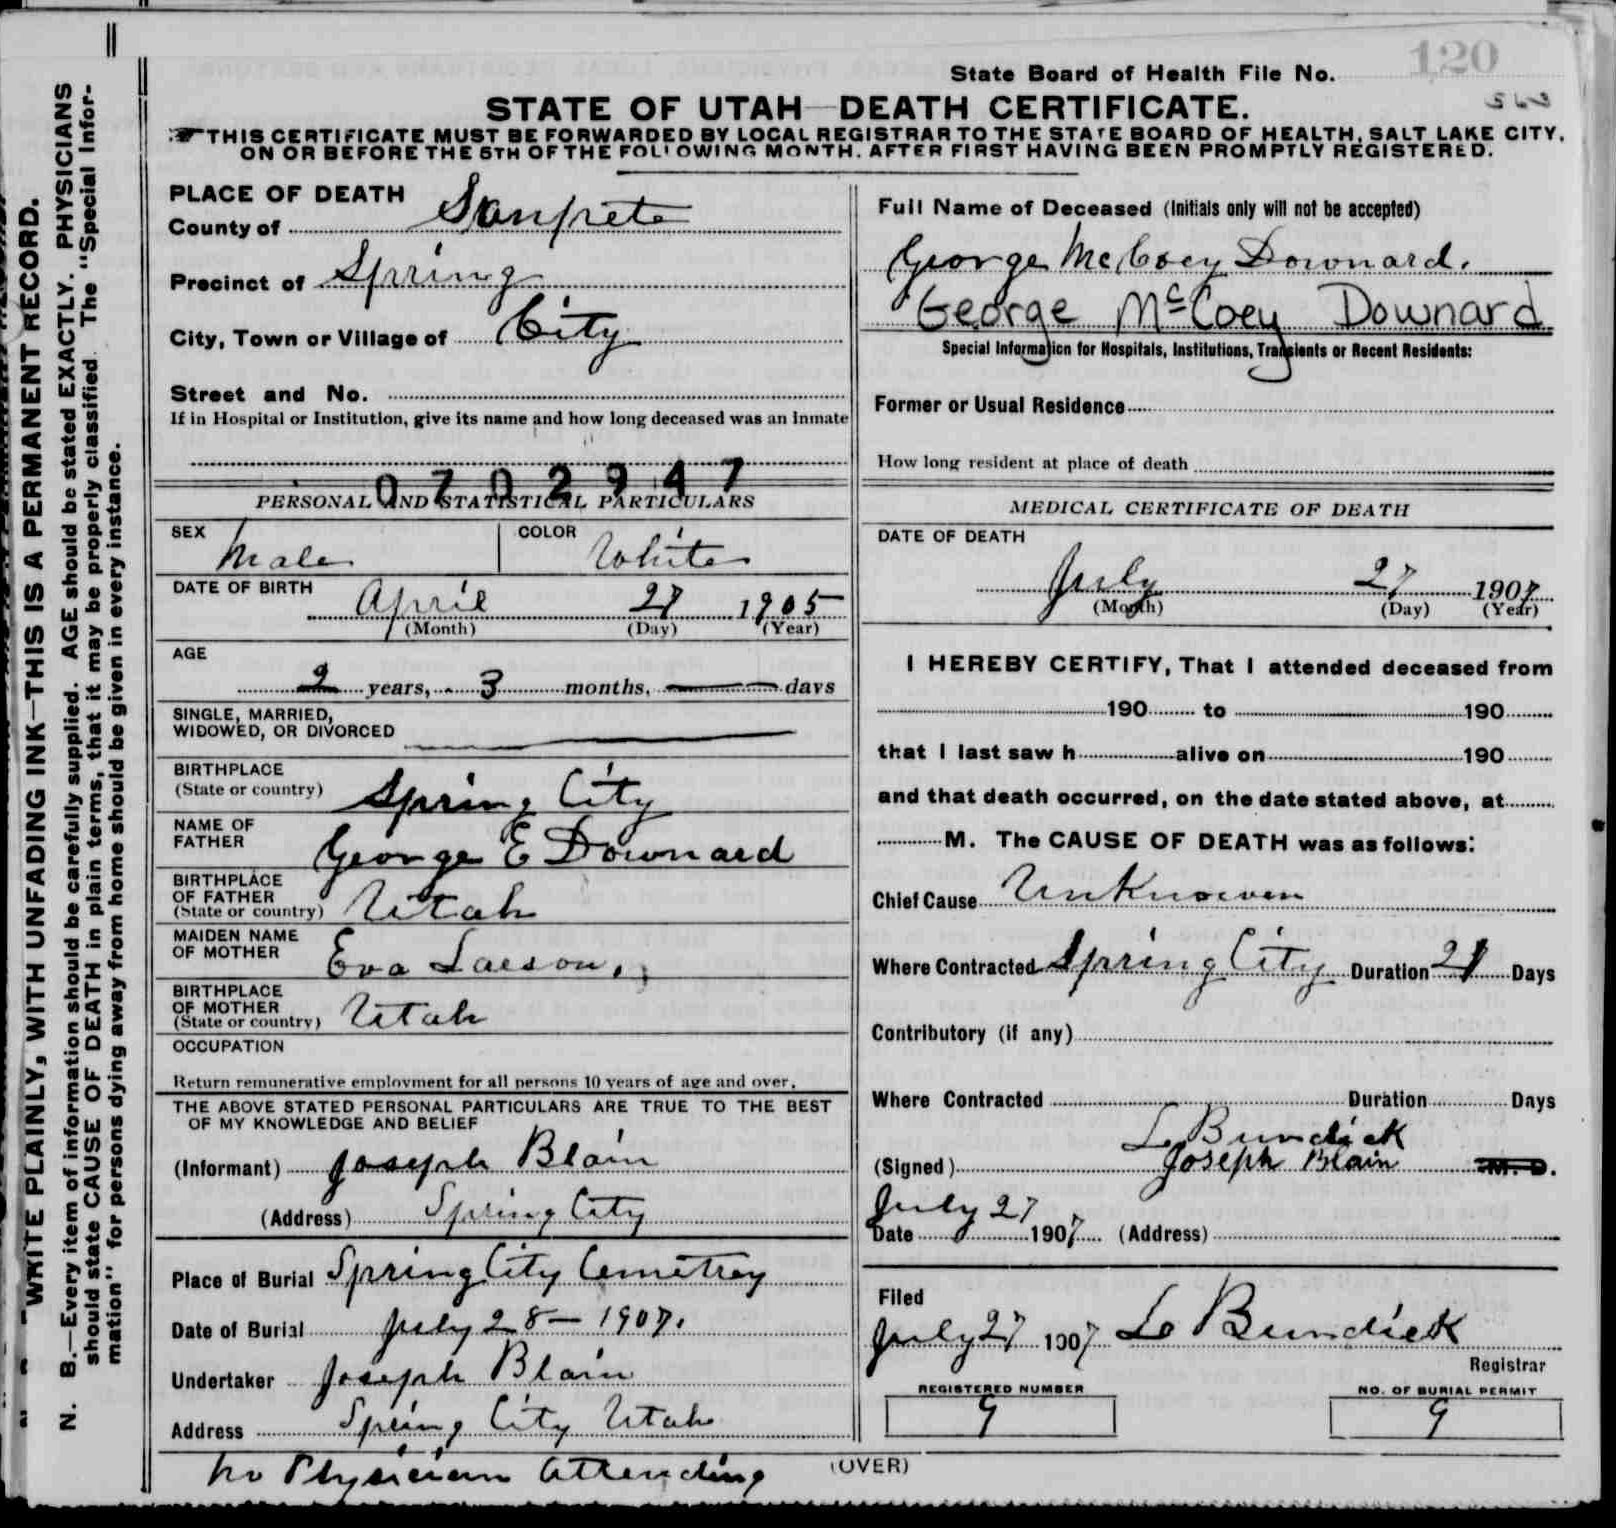 120
State Board of Health File No.
563
STATE OF UTAH—DEATH CERTIFICATE.
THIS CERTIFICATE MUST BE FORWARDED BY LOCAL REGISTRAR TO THE STATE BOARD OF HEALTH, SALT LAKE CITY,
ON OR BEFORE THE 5TH OF THE FOLLOWING MONTH, AFTER FIRST HAVING BEEN PROMPTLY REGISTERED.
WRITE PLAINLY, WITH UNFADING INK—THIS IS A PERMANENT RECORD.
N. B.—Every item of information should be carefully supplied. AGE should be stated EXACTLY. PHYSICIANS
should state CAUSE OF DEATH in plain terms, that it may be properly classified. The "Special Infor-
mation" for persons dying away from home should be given in every instance.
PLACE OF DEATH
County of Sanpete
Precinct of Spring
City, Town or Village of City
Street and No.
If in Hospital or Institution, give its name and how long deceased was an inmate
0702947
PERSONAL AND STATISTICAL PARTICULARS
SEX Male COLOR White
DATE OF BIRTH April 27 1905
(Month) (Day) (Year)
AGE
2 years, 3 months, — days
SINGLE, MARRIED,
WIDOWED, OR DIVORCED
BIRTHPLACE
(State or country) Spring City
NAME OF
FATHER George E Downard
BIRTHPLACE
OF FATHER
(State or country) Utah
MAIDEN NAME
OF MOTHER Eva Larson.
BIRTHPLACE
OF MOTHER
(State or country) Utah
OCCUPATION
Return remunerative employment for all persons 10 years of age and over.
THE ABOVE STATED PERSONAL PARTICULARS ARE TRUE TO THE BEST
OF MY KNOWLEDGE AND BELIEF
(Informant) Joseph Blain
(Address) Spring City
Place of Burial Spring City Cemetrey
Date of Burial July 28 – 1907.
Undertaker Joseph Blain
Address Spring City Utah
No Physician Attending
Full Name of Deceased (Initials only will not be accepted)
George McCoey Downard.
George McCoey Downard
Special Information for Hospitals, Institutions, Transients or Recent Residents:
Former or Usual Residence
How long resident at place of death
MEDICAL CERTIFICATE OF DEATH
DATE OF DEATH
July 27 1907
(Month) (Day) (Year)
I HEREBY CERTIFY, That I attended deceased from
190 to 190
that I last saw h alive on 190
and that death occurred, on the date stated above, at
M. The CAUSE OF DEATH was as follows:
Chief Cause Unknowen
Where Contracted Spring City Duration 21 Days
Contributory (if any)
Where Contracted Duration Days
L Bundick
(Signed) Joseph Blain M. D.
July 27
Date 1907 (Address)
Filed
July 27 1907 L Bundick
Registrar
REGISTERED NUMBER
9
NO. OF BURIAL PERMIT
9
(OVER)